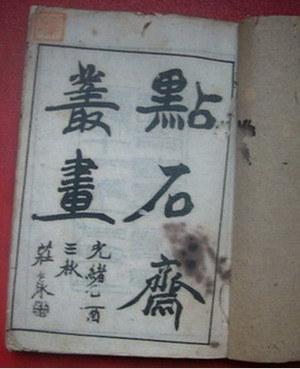 點石齋
叢畫
光緒乙酉
三秋